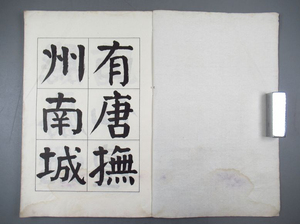 有唐撫
州南城